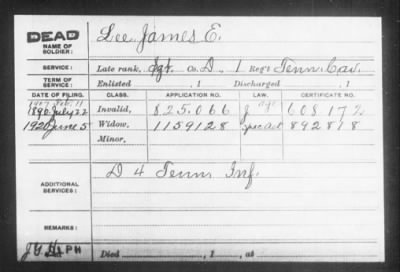 DEAD
NAME OF
SOLDIER:
Lee James E.
SERVICE:
Late rank, Sgt. Co. D, 1 Reg't Tenn. Cav.
TERM OF
SERVICE:
Enlisted , 1 Discharged , 1
DATE OF FILING. CLASS. APPLICATION NO. LAW. CERTIFICATE NO.
1907 Feb. 11
1890 July 22 Invalid, 825.066 J age 608172
1920 June 5 Widow, 1159128 Spec act 892818
Minor,
D 4 Tenn Inf.
ADDITIONAL
SERVICES:
REMARKS:
Died , 1 , at